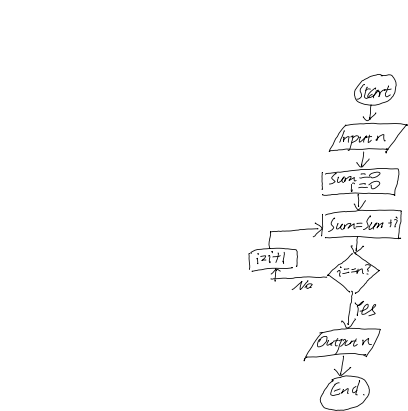 Start
Input n
Sum=0
i=0
Sum=Sum+i
i=i+1
i==n?
No
Yes
Output n
End.